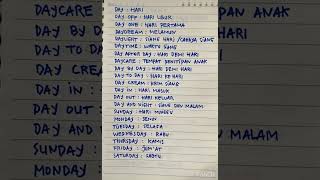 DAY : HARI
DAY OFF : HARI LIBUR
DAY ONE : HARI PERTAMA
DAYDREAM : MELAMUN
DAYLIGHT : SIANG HARI / CAHAYA SIANG
DAYTIME : WAKTU SIANG
DAY AFTER DAY : HARI DEMI HARI
DAYCARE : TEMPAT PENITIPAN ANAK
DAY BY DAY : HARI DEMI HARI
DAY TO DAY : HARI KE HARI
DAY CREAM : KRIM SIANG
DAY IN : HARI MASUK
DAY OUT : HARI KELUAR
DAY AND NIGHT : SIANG DAN MALAM
SUNDAY : HARI MINGGU
MONDAY : SENIN
TUESDAY : SELASA
WEDNESDAY : RABU
THURSDAY : KAMIS
FRIDAY : JUM'AT
SATURDAY : SABTU